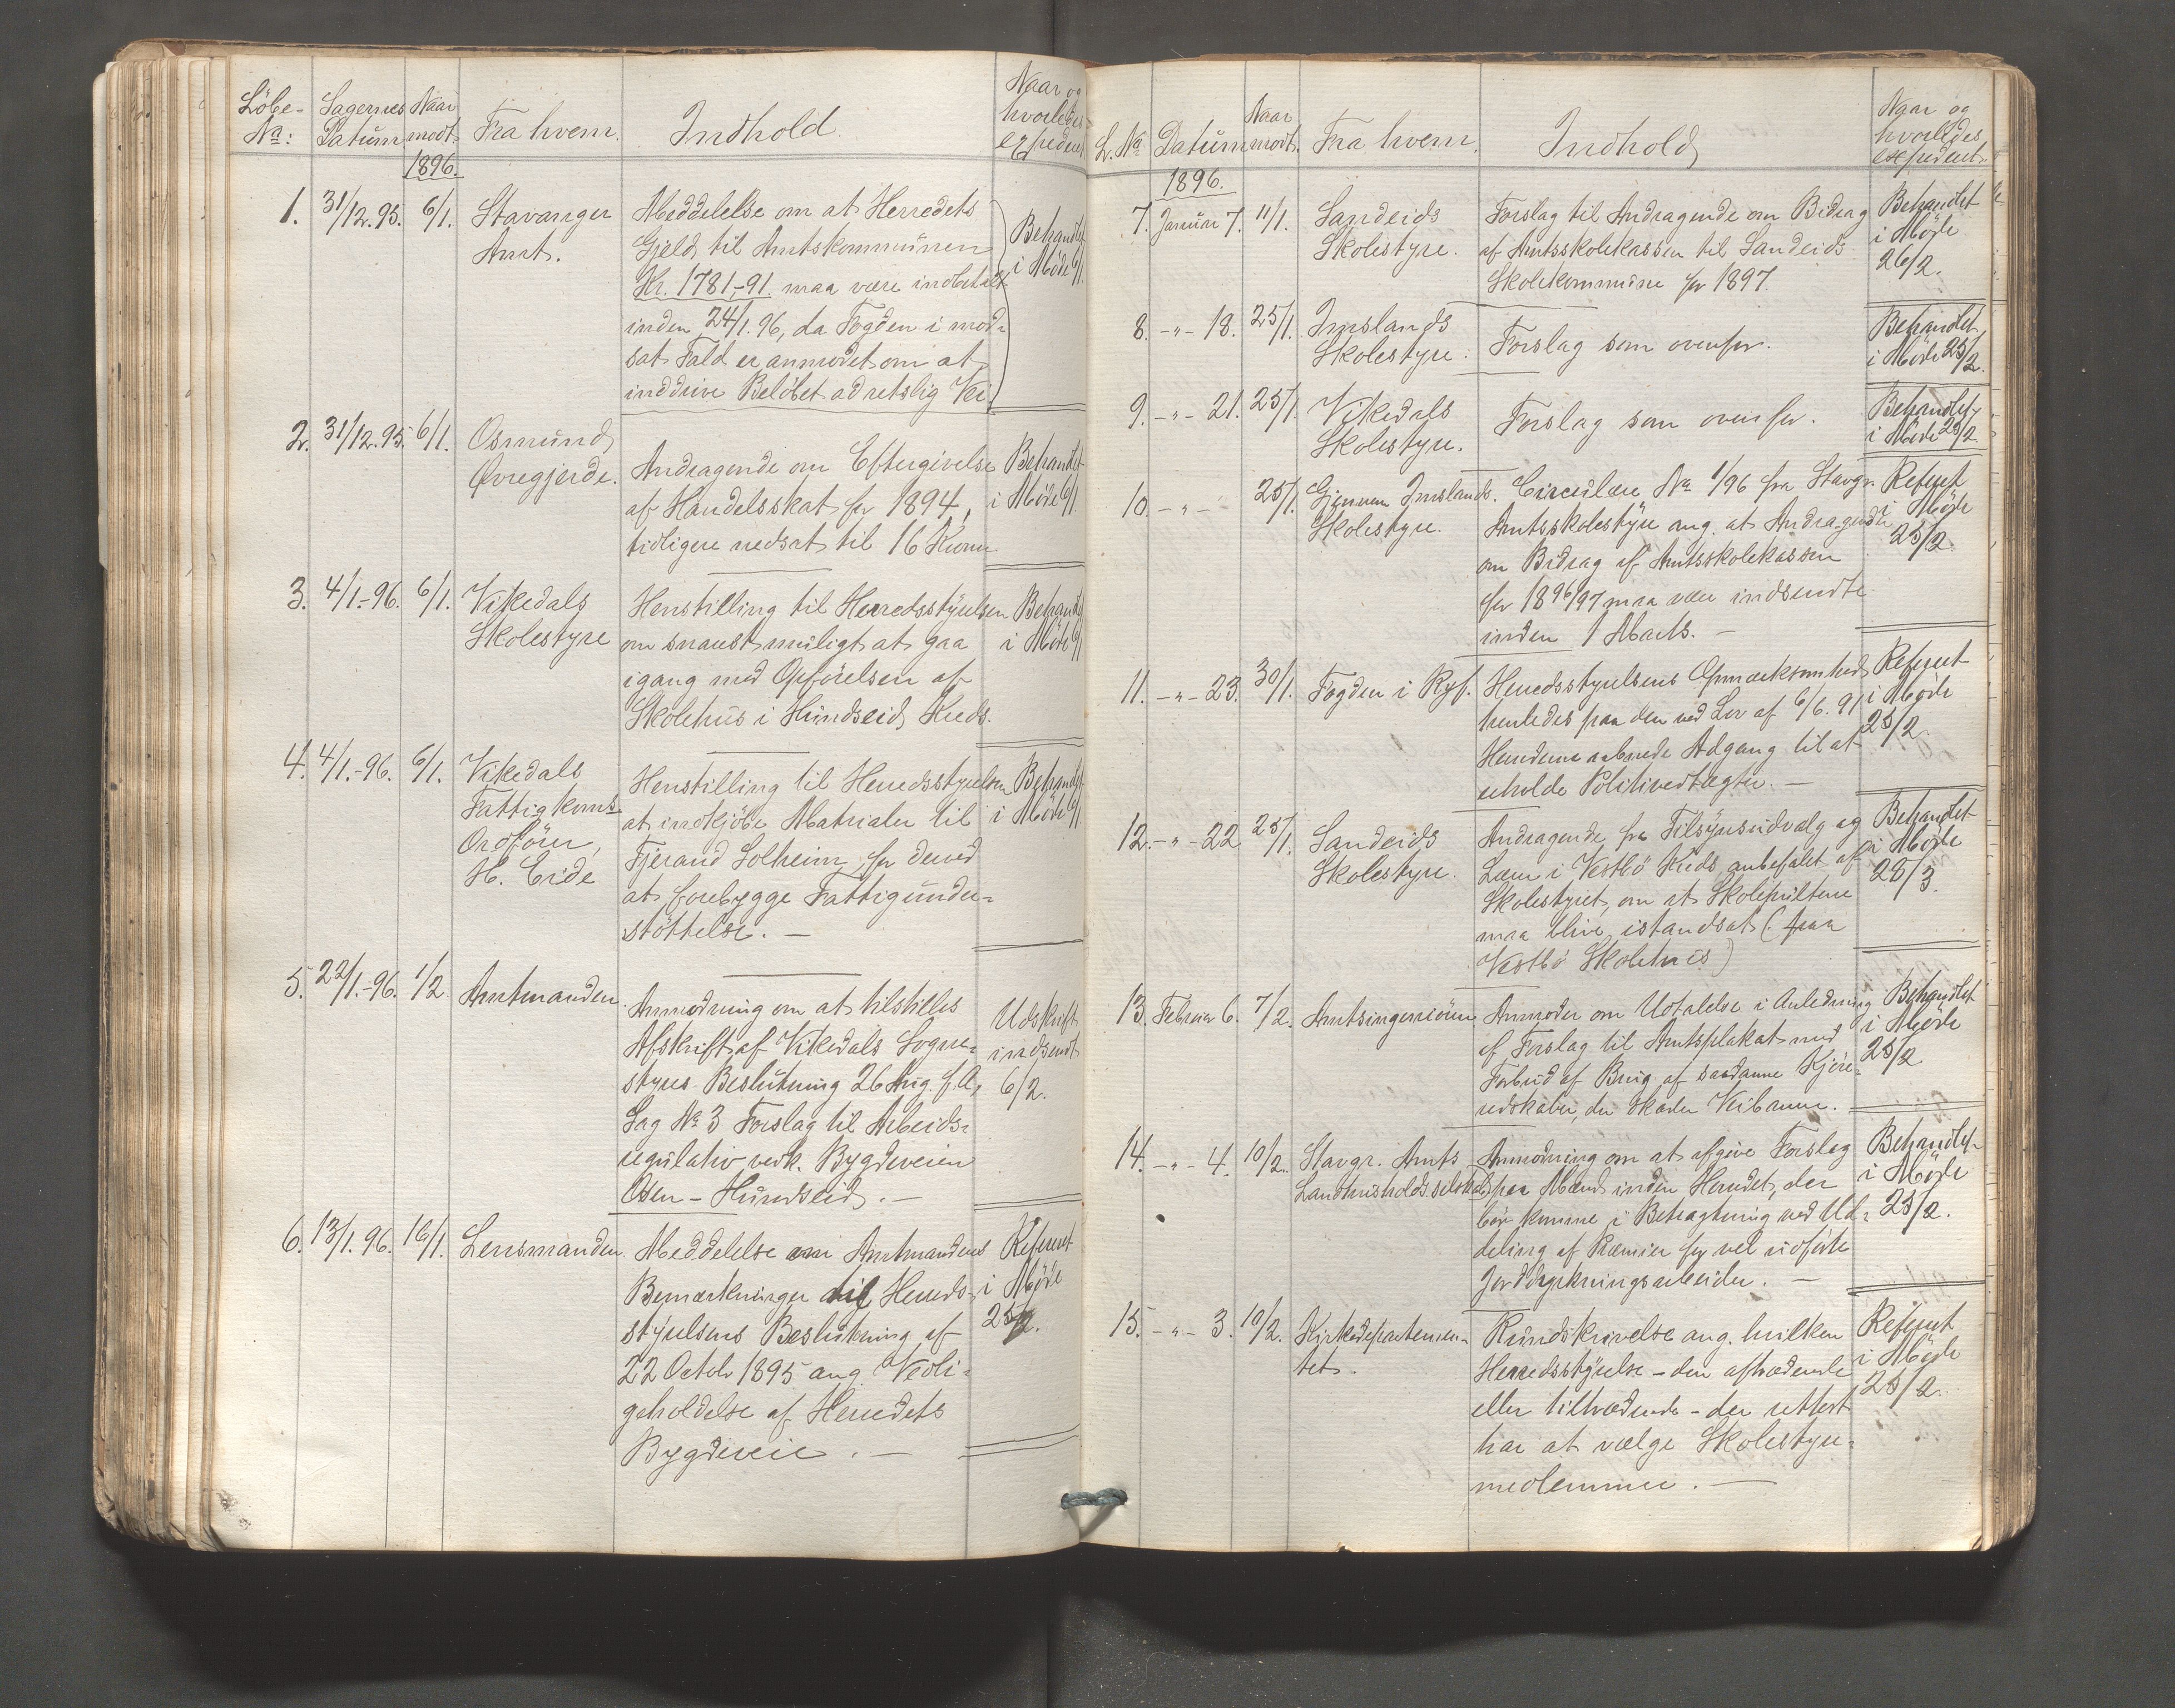 Löbe-
No:
Sagernes
Datum
Naar
modt.
Fra hvem.
Indhold.
Naar og
hvorledes
expederet
1896.
1. 31/12.95. 6/1. Stavanger
Amt.
Meddelelse om at Herredets
Gjeld til Amtskommunen
Kr. 1781,-91. maa være indbetalt
inden 24/1.96, da Fogden i mod-
sat Fald er anmodet om at
inddrive Beløbet ad retslig Vei.
Behandlet
i Møde 6/1
2. 31/12.95. 6/1. Osmund
Øvregjerde.
Andragende om Eftergivelse
af Handelsskat for 1894,
tidligere nedsat til 16 Kroner
Behandlet
i Møde 6/1
3. 4/1.-96. 6/1. Vikedals
Skolestyre
Henstilling til Herredsstyrelsen
om snarest muligt at gaa
igang med Opförelsen af
Skolehus i Hundseid Kreds.
Behandlet
i Møde 6/1
4. 4/1.-96. 6/1. Vikedals
Fattigkoms
Ordförer,
H. Eide
Henstilling til Herredsstyrelsen
at indkjöbe Matrialer til
Tjerand Solheim for derved
at forebygge Fattigunder-
støttelse. —
Behandlet
i Møde 6/1
5. 22/1.-96. 1/2. Amtmanden.
Anmodning om at tilstilles
Afskrift af Vikedals Sogne-
styres Beslutning 26 Aug. f.A,
Sag No 3 Forslag til Arbeids-
regulativ vedk. Bygdeveien
Osen - Hundseid. —
Udskrift
indsendt
6/2.
6. 13/1.96. 16/1. Lensmanden.
Meddelelse om Amtmandens
Bemærkninger til Herreds-
styrelsens Beslutning af
22 Octob 1895 ang. Vedli-
geholdelse af Herredets
Bygdeveie. —
Referert
i Møde
25/2.
L. No
Datum
Naar
modt.
Fra hvem.
Indhold
Naar og
hvorledes
expederet.
1896.
7. Januar 7. 11/1. Sandeids
Skolestyre.
Forslag til Andragende om Bidrag
af Amtsskolekassen til Sandeids
Skolekommune for 1897.
Behandlet
i Møde
26/2.
8. -"- 18. 25/1. Imslands
Skolestyre.
Forslag som ovenfor.
Behandlet
i Møde 25/2.
9. -"- 21. 25/1. Vikedals
Skolestyre.
Forslag som ovenfor.
Behandlet
i Møde 25/2
10. -"- 25/1. Gjennem Imslands.
Skolestyre.
Circulære No 1/96 fra Stavgr.
Amtsskolestyre ang. at Andragende
om Bidrag af Amtsskolekassen
for 1896/97 maa være indsendte
inden 1 Marts. —
Referert
i Møde
25/2.
11. -"- 23. 30/1. Fogden i Ryf.
Herredsstyrelsens Opmærksomhed
henledes paa den ved Lov af 6/6.91
Herrederne aabnede Adgang til at
erholde Politivedtægter. —
Referert
i Møde
25/2.
12. -"- 22 25/1. Sandeids
Skolestyre.
Andragende fra Tilsynsudvalg og
Lærer i Vestbø Kreds anbefalet af
Skolestyret, om at Skolepultene
maa blive istandsat (: paa
Vestbø Skolehus)
Behandlet
i Møde
28/3.
13. Februar 6. 7/2. Amtsingeniören
Anmoder om Udtalelse i Anledning
af Forslag til Amtsplakat med
Forbud af Brug af saadanne Kjøre-
redskaber, der skader Veibanen.
Behandlet
i Møde
25/2
14. -"- 4. 10/2. Stavgr. Amts
Landhusholds.selskab
Anmodning om at afgive Forslag
paa Mænd inden Herredet, der
bør komme i Betragtning ved Ud-
deling af Præmier for vel udførte
Jorddyrkningsarbeider. —
Behandlet
i Møde
25/2.
15. -"- 3. 10/2. Kirkedepartemen-
tet.
Rundskrivelse ang. hvilken
Herredsstyrelse - den aftrædende
eller tiltrædende - der rettest
har at vælge Skolestyre-
medlemmer. —
Referert
i Møde
25/2.